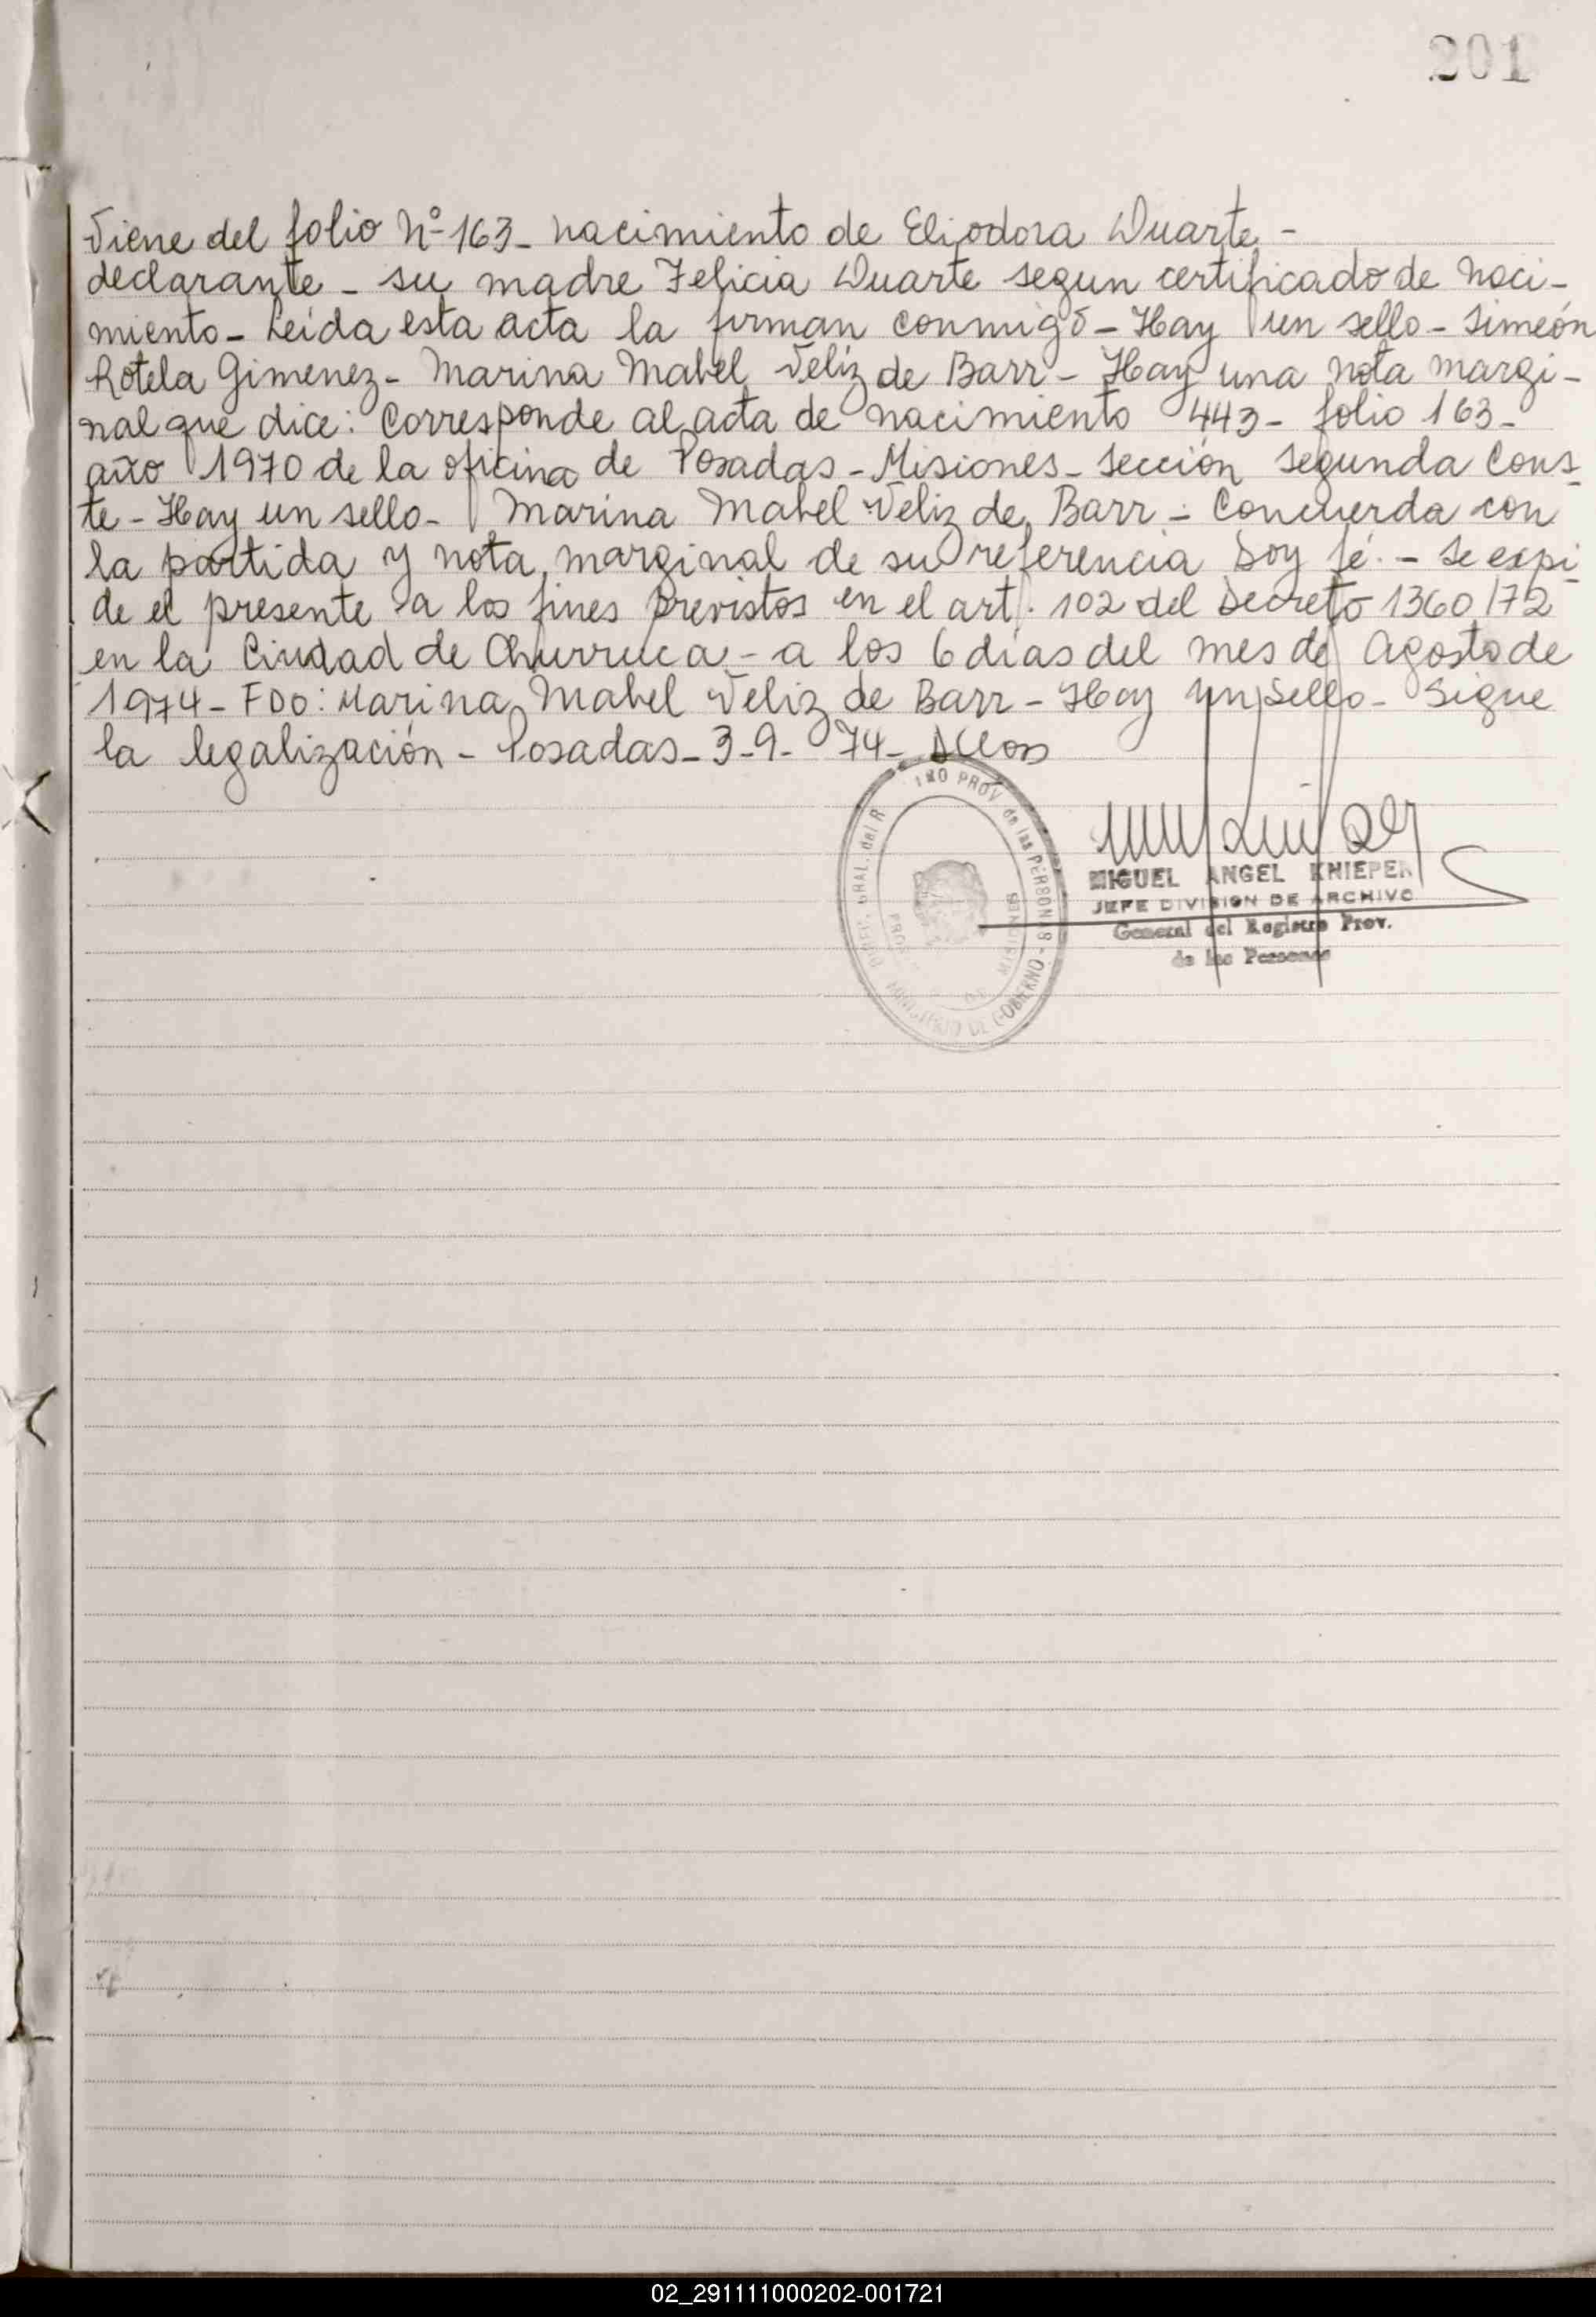 201
Viene del folio Nº 163 - nacimiento de Eliodora Duarte -
declarante - su madre Felicia Duarte segun certificado de naci-
miento - Leída esta acta la firman conmigo - Hay un sello - Simeón
Rotela Gimenez - Marina Mabel Veliz de Barr - Hay una nota margi-
nal que dice: Corresponde al acta de nacimiento 443 - folio 163 -
año 1970 de la oficina de Posadas - Misiones - Sección Segunda Cons-
te - Hay un sello - Marina Mabel Veliz de Barr - Concuerda con
la partida y nota marginal de su referencia Doy fé. - Se expi-
de el presente a los fines previstos en el art. 102 del Decreto 1360/72
en la Ciudad de Churruca - a los 6 días del mes de Agosto de
1974 - FDO: Marina Mabel Veliz de Barr - Hay un sello - Sigue
la legalización - Posadas - 3-9-74 -
GRAL. del R PROV. de las PERSONAS - MINISTERIO DE GOBIERNO
MISIONES
MIGUEL ANGEL KNIEPER
JEFE DIVISION DE ARCHIVO
General del Registro Prov.
de las Personas
02_291111000202-001721